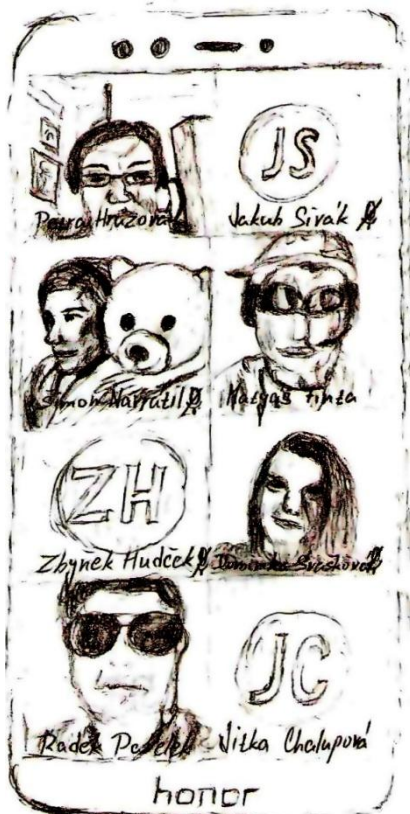 Petra Hrůzová
JS
Jakub Sivák
Šimon Navrátil
Matyáš Hinza
ZH
Zbyněk Hudček
Dominika
Radek
JC
Jitka Chalupová
honor